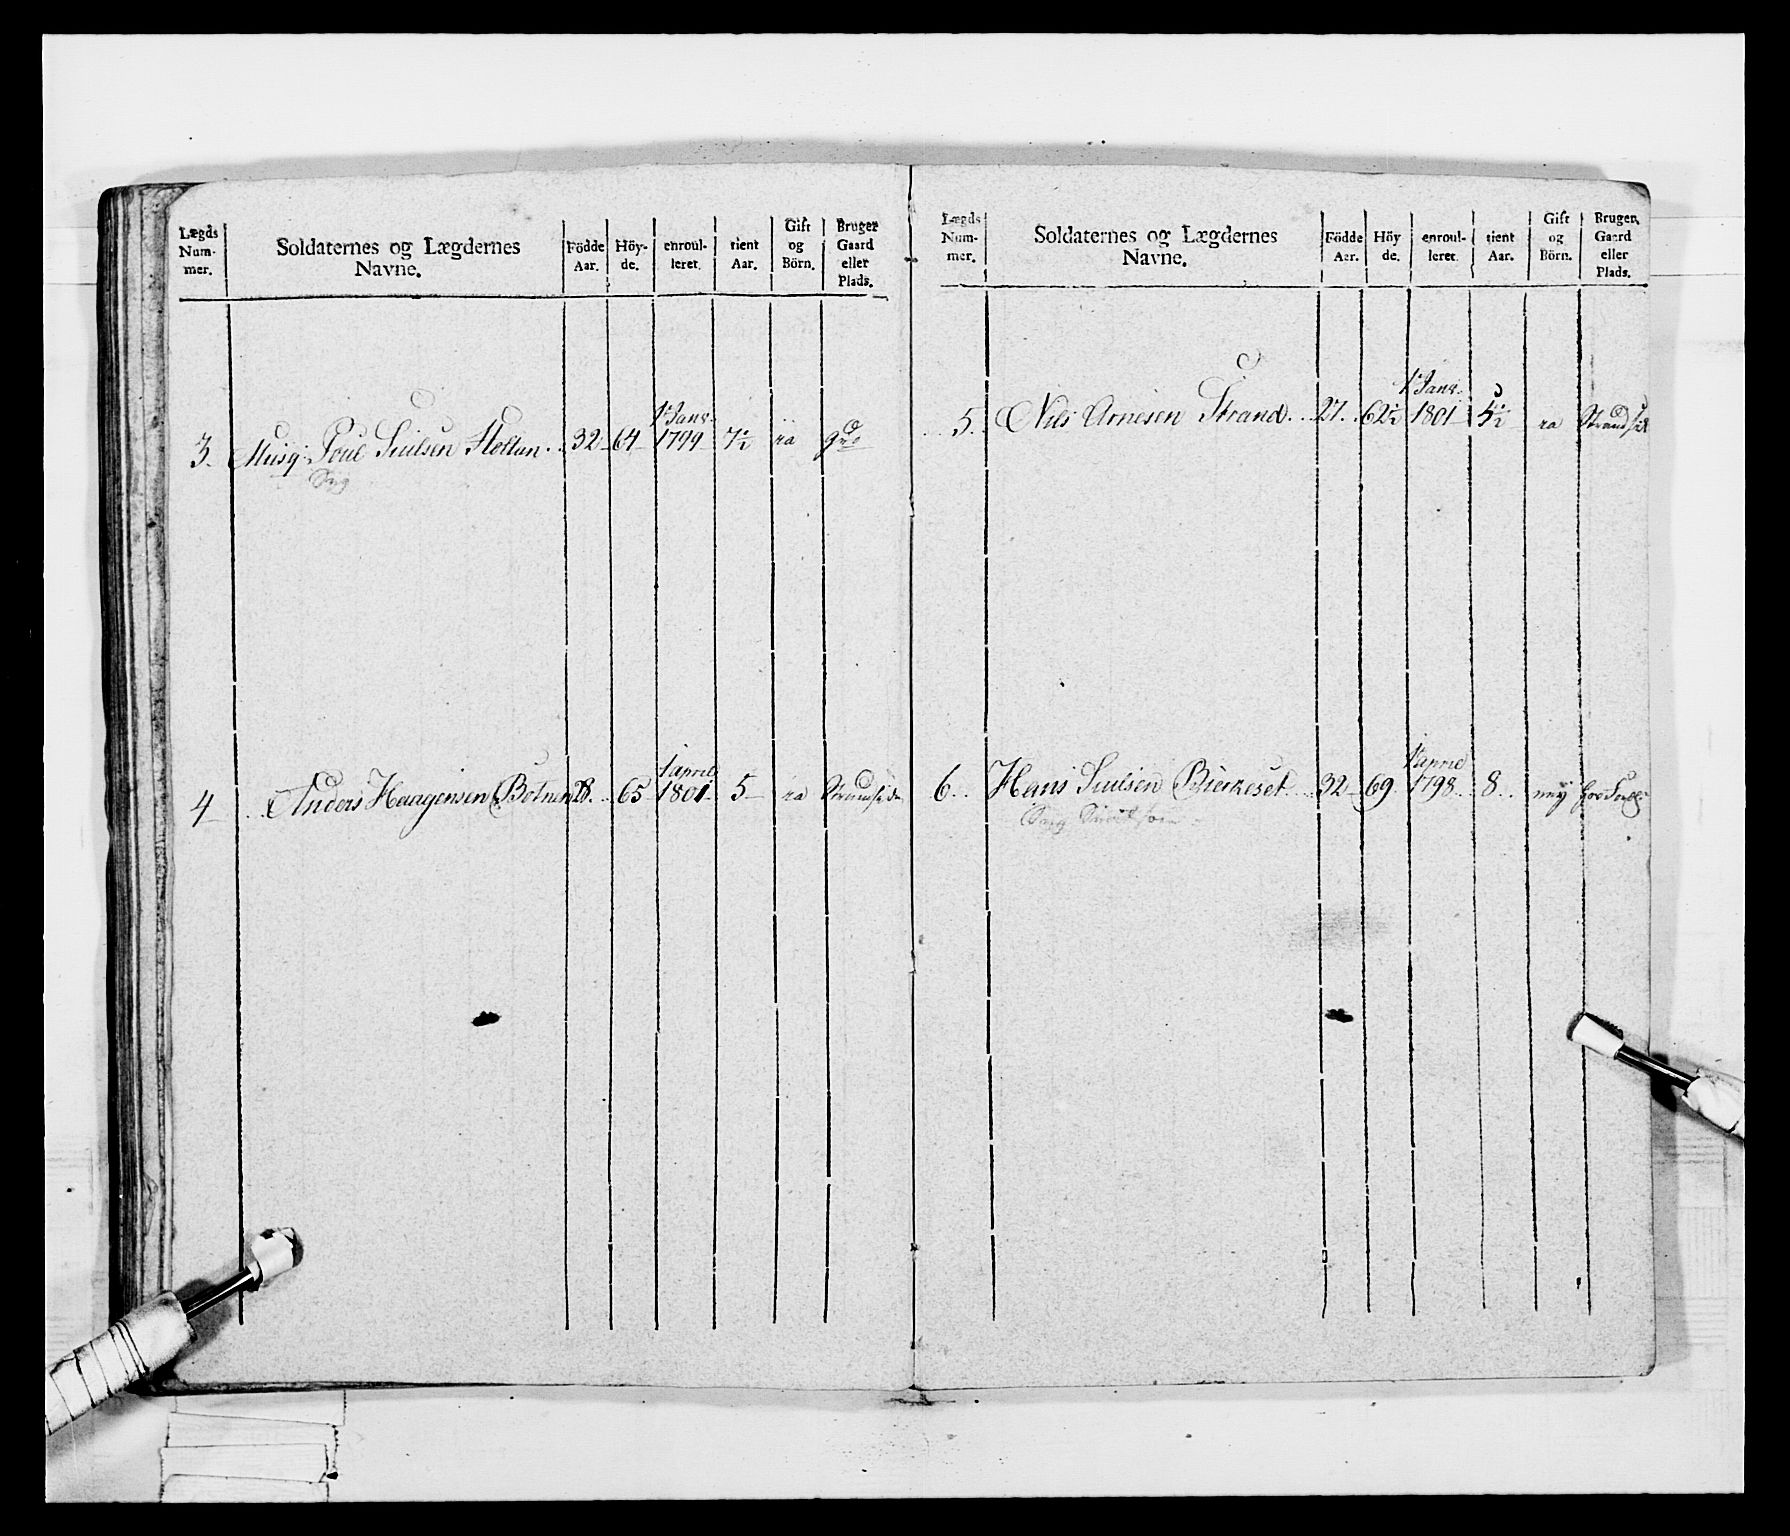 Lægds Num-mer. Soldaternes og Lægdernes Navne. Födde Aar. Höy-de. enroul-leret. tient Aar. Gift og Börn. Bruger Gaard eller Plads.
1 Janr.
3. Musq: Poul Siulsen 32 64 1799 7½
1 April
4 Anders Haagensen Botnen 28. 65 1801 5
Lægds Num-mer. Soldaternes og Lægdernes Navne. Födde Aar. Höy de. enroul-leret. tient Aar. Gift og Börn. Bruger. Gaard eller Plads.
1 Janr.
5. Nils Arnesen Strand 27. 62½ 1801 5½
1 April
6. Hans Siulsen Bierkeset 32 69 1798 8